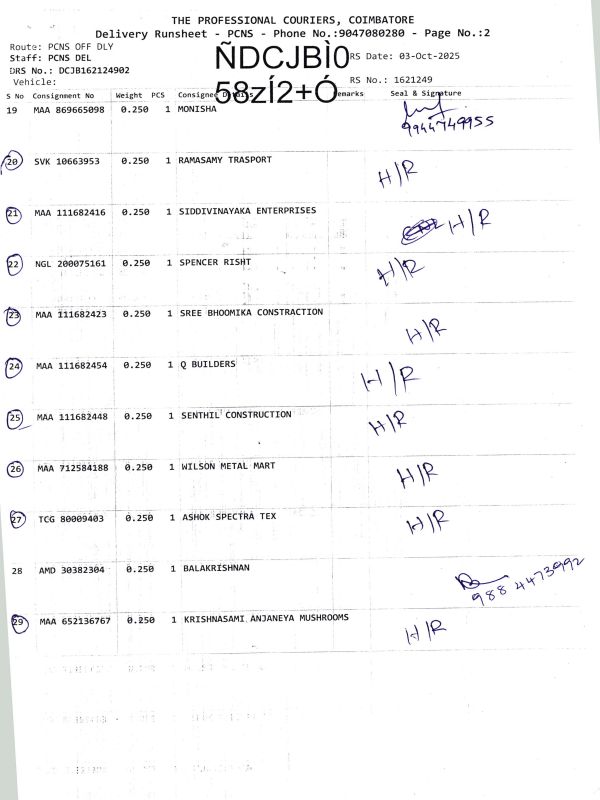 THE PROFESSIONAL COURIERS, COIMBATORE
Delivery Runsheet - PCNS - Phone No.:9047080280 - Page No.:2
Route: PCNS OFF DLY
Staff: PCNS DEL ÑDCJBÌ0 RS Date: 03-Oct-2025
DRS No.: DCJB162124902
Vehicle: 58zÍ2+Ó RS No.: 1621249
S No Consignment No Weight PCS Consignee Details Remarks Seal & Signature
19 MAA 869665098 0.250 1 MONISHA
9944749955
20 SVK 10663953 0.250 1 RAMASAMY TRASPORT H/R
21 MAA 111682416 0.250 1 SIDDIVINAYAKA ENTERPRISES H/R
22 NGL 200075161 0.250 1 SPENCER RISHT H/R
23 MAA 111682423 0.250 1 SREE BHOOMIKA CONSTRACTION H/R
24 MAA 111682454 0.250 1 Q BUILDERS H/R
25 MAA 111682448 0.250 1 SENTHIL CONSTRUCTION H/R
26 MAA 712584188 0.250 1 WILSON METAL MART H/R
27 TCG 80009403 0.250 1 ASHOK SPECTRA TEX H/R
28 AMD 30382304 0.250 1 BALAKRISHNAN
988 4473992
29 MAA 652136767 0.250 1 KRISHNASAMI ANJANEYA MUSHROOMS H/R